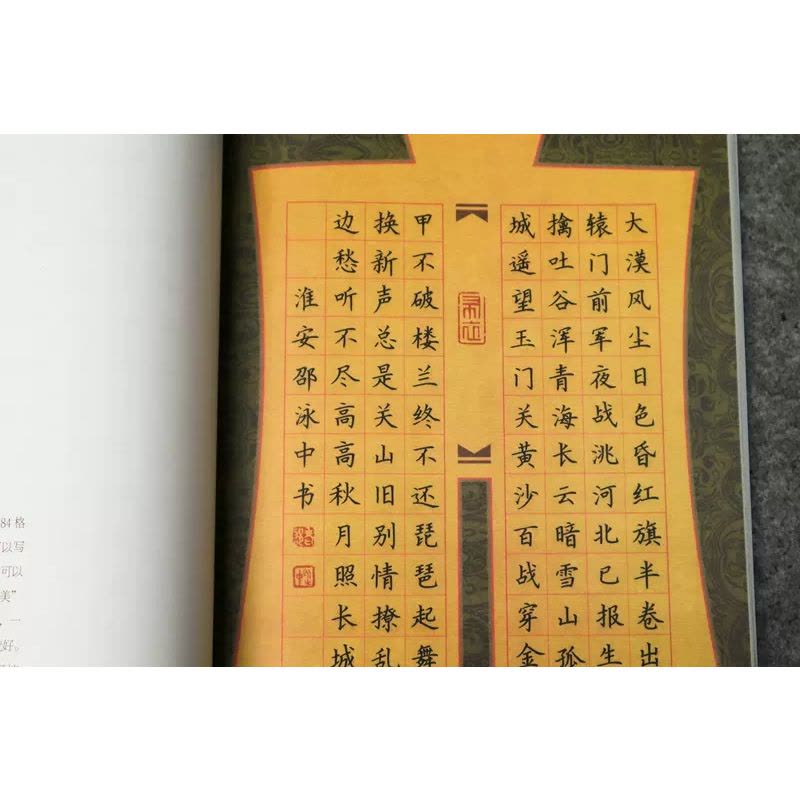 84格
以写
可以
美”
，一
好。
大漠风尘日色昏红旗半卷出
辕门前军夜战洮河北已报生
擒吐谷浑青海长云暗雪山孤
城遥望玉门关黄沙百战穿金
甲不破楼兰终不还琵琶起舞
换新声总是关山旧别情撩乱
边愁听不尽高高秋月照长城
淮安邵泳中书